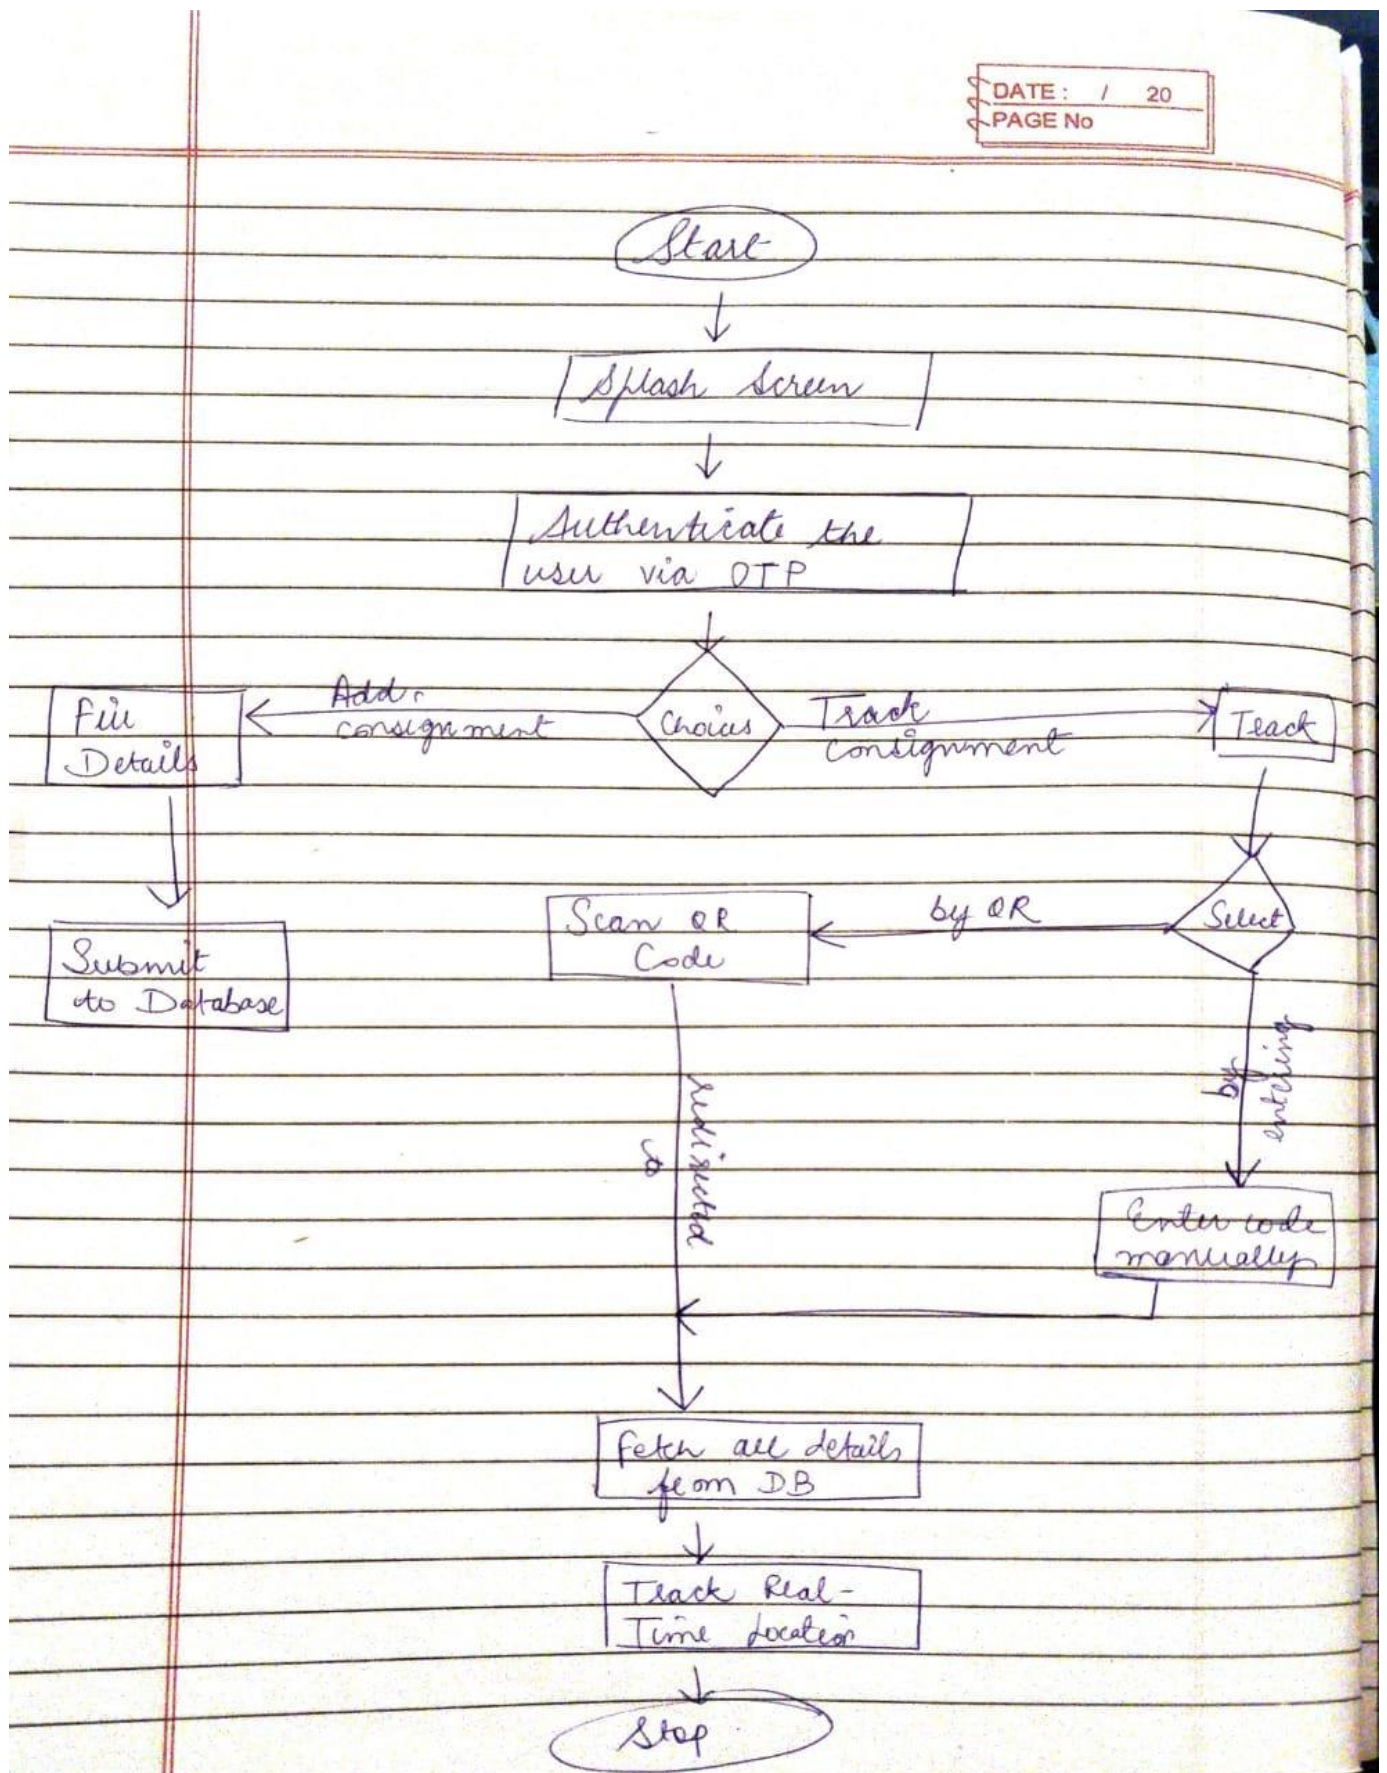 DATE : / 20
PAGE No
Start
Splash Screen
Authenticate the
user via OTP
Choices
Add
consignment
Fill
Details
Submit
to Database
Track
consignment
Track
Select
by QR
Scan QR
Code
redirected
to
by
entering
Enter code
manually
Fetch all details
from DB
Track Real-
Time Location
Stop